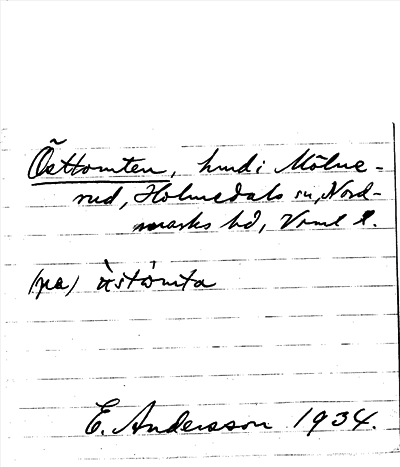 Östtomten, hmd i Mölne-
rud, Holmedals sn, Nord-
marks hd, Vrml l.
(på) östomta
E. Andersson 1934.